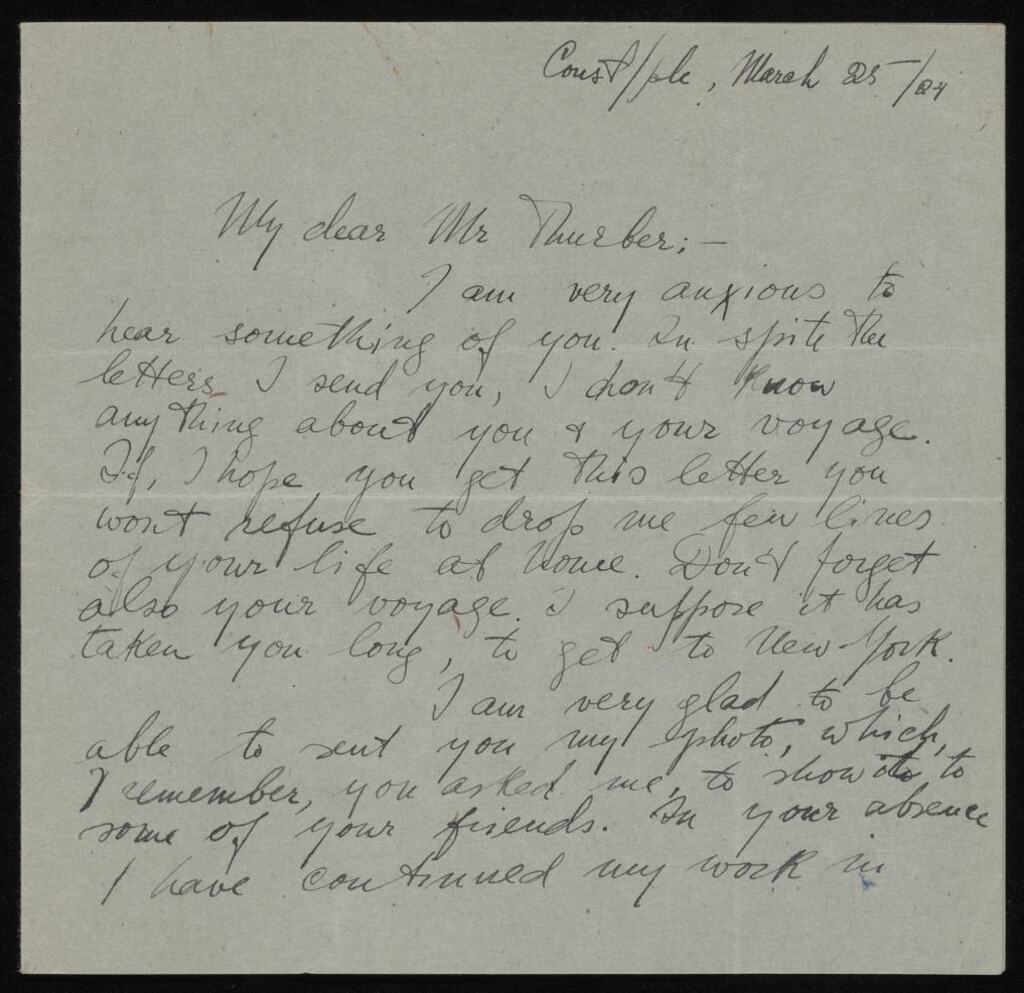 Const/ple, March 25/24
My dear Mr Thurber; —
I am very anxious to
hear something of you. In spite the
letters I send you, I don't know
anything about you & your voyage.
If, I hope you get this letter you
wont refuse to drop me few lines
of your life at home. Don't forget
also your voyage. I suppose it has
taken you long, to get to New-York.
I am very glad to be
able to sent you my photo, which,
I remember, you asked me, to show it to
some of your friends. In your absence
I have continued my work in